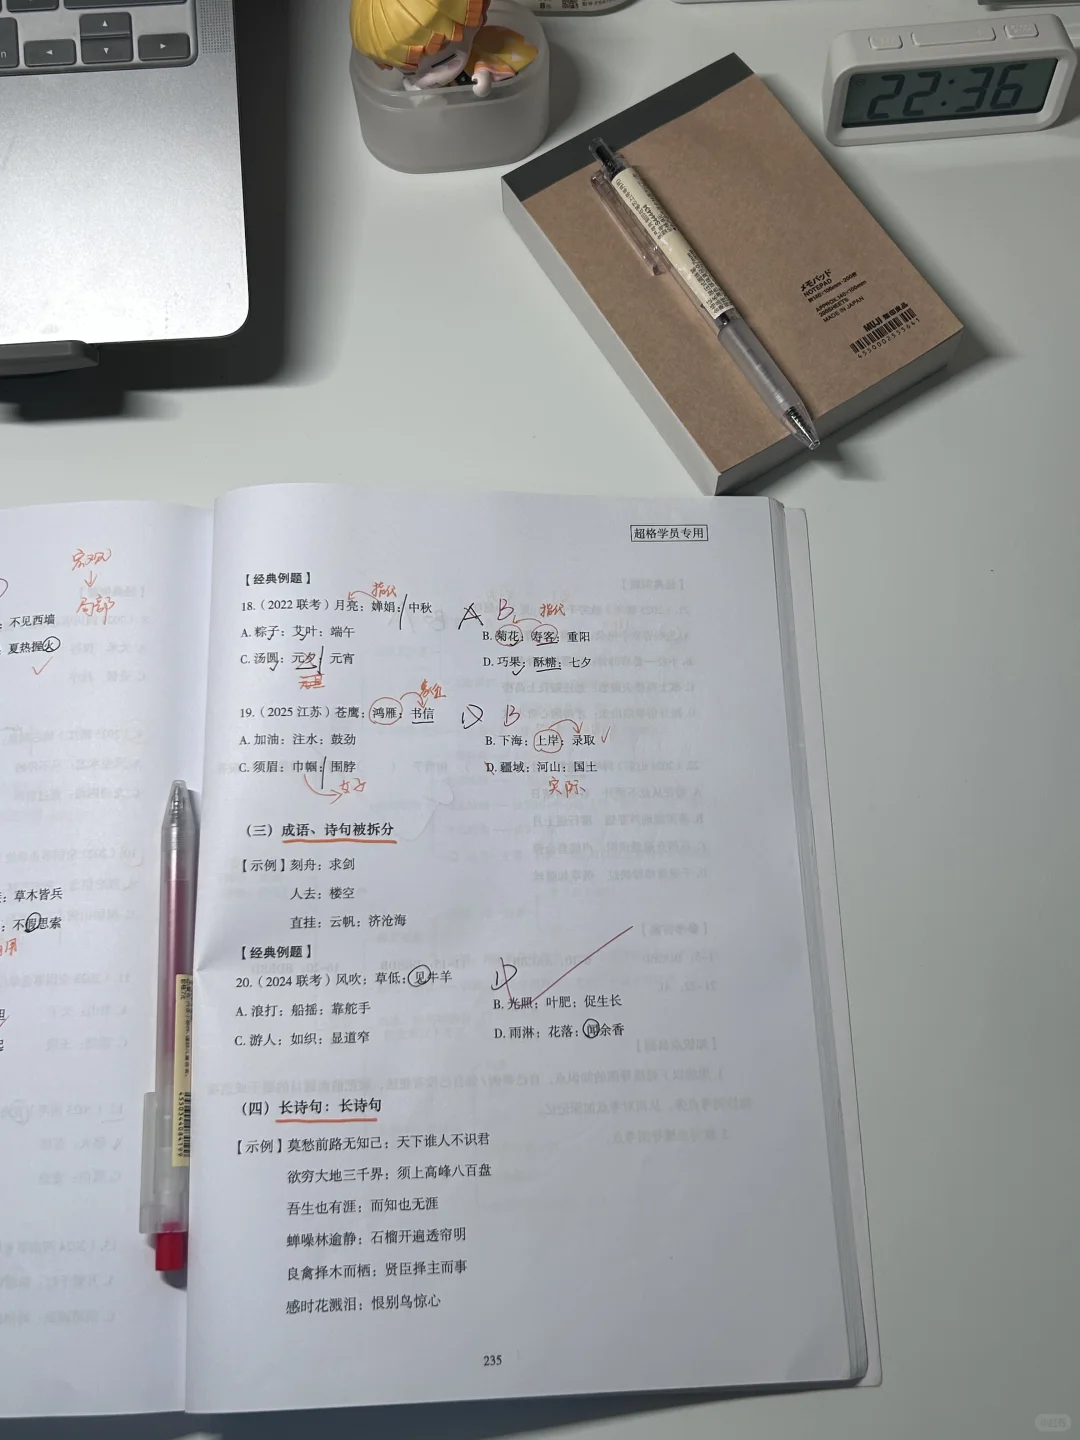 22:36
メモパッド
NOTEPAD
200SHEETS
MADE IN JAPAN
MUJI 無印良品
4550002535641
超格学员专用
宏观
↓
局部
不见西墙
夏热握火
草木皆兵
不假思索
【经典例题】
指代
18.（2022 联考）月亮：婵娟：中秋 A B 指代
A. 粽子：艾叶：端午
B. 菊花：寿客：重阳
C. 汤圆：元夕：元宵
D. 巧果：酥糖：七夕
19.（2025 江苏）苍鹰：鸿雁：书信 D B
A. 加油：注水：鼓劲
B. 下海：上岸：录取
C. 须眉：巾帼：围脖
D. 疆域：河山：国土
女子
实际
（三）成语、诗句被拆分
【示例】刻舟：求剑
人去：楼空
直挂：云帆：济沧海
【经典例题】
20.（2024 联考）风吹：草低：见牛羊 D
A. 浪打：船摇：靠舵手
B. 光照：叶肥：促生长
C. 游人：如织：显道窄
D. 雨淋：花落：闻余香
（四）长诗句：长诗句
【示例】莫愁前路无知己：天下谁人不识君
欲穷大地三千界：须上高峰八百盘
吾生也有涯：而知也无涯
蝉噪林逾静：石榴开遍透帘明
良禽择木而栖：贤臣择主而事
感时花溅泪：恨别鸟惊心
235